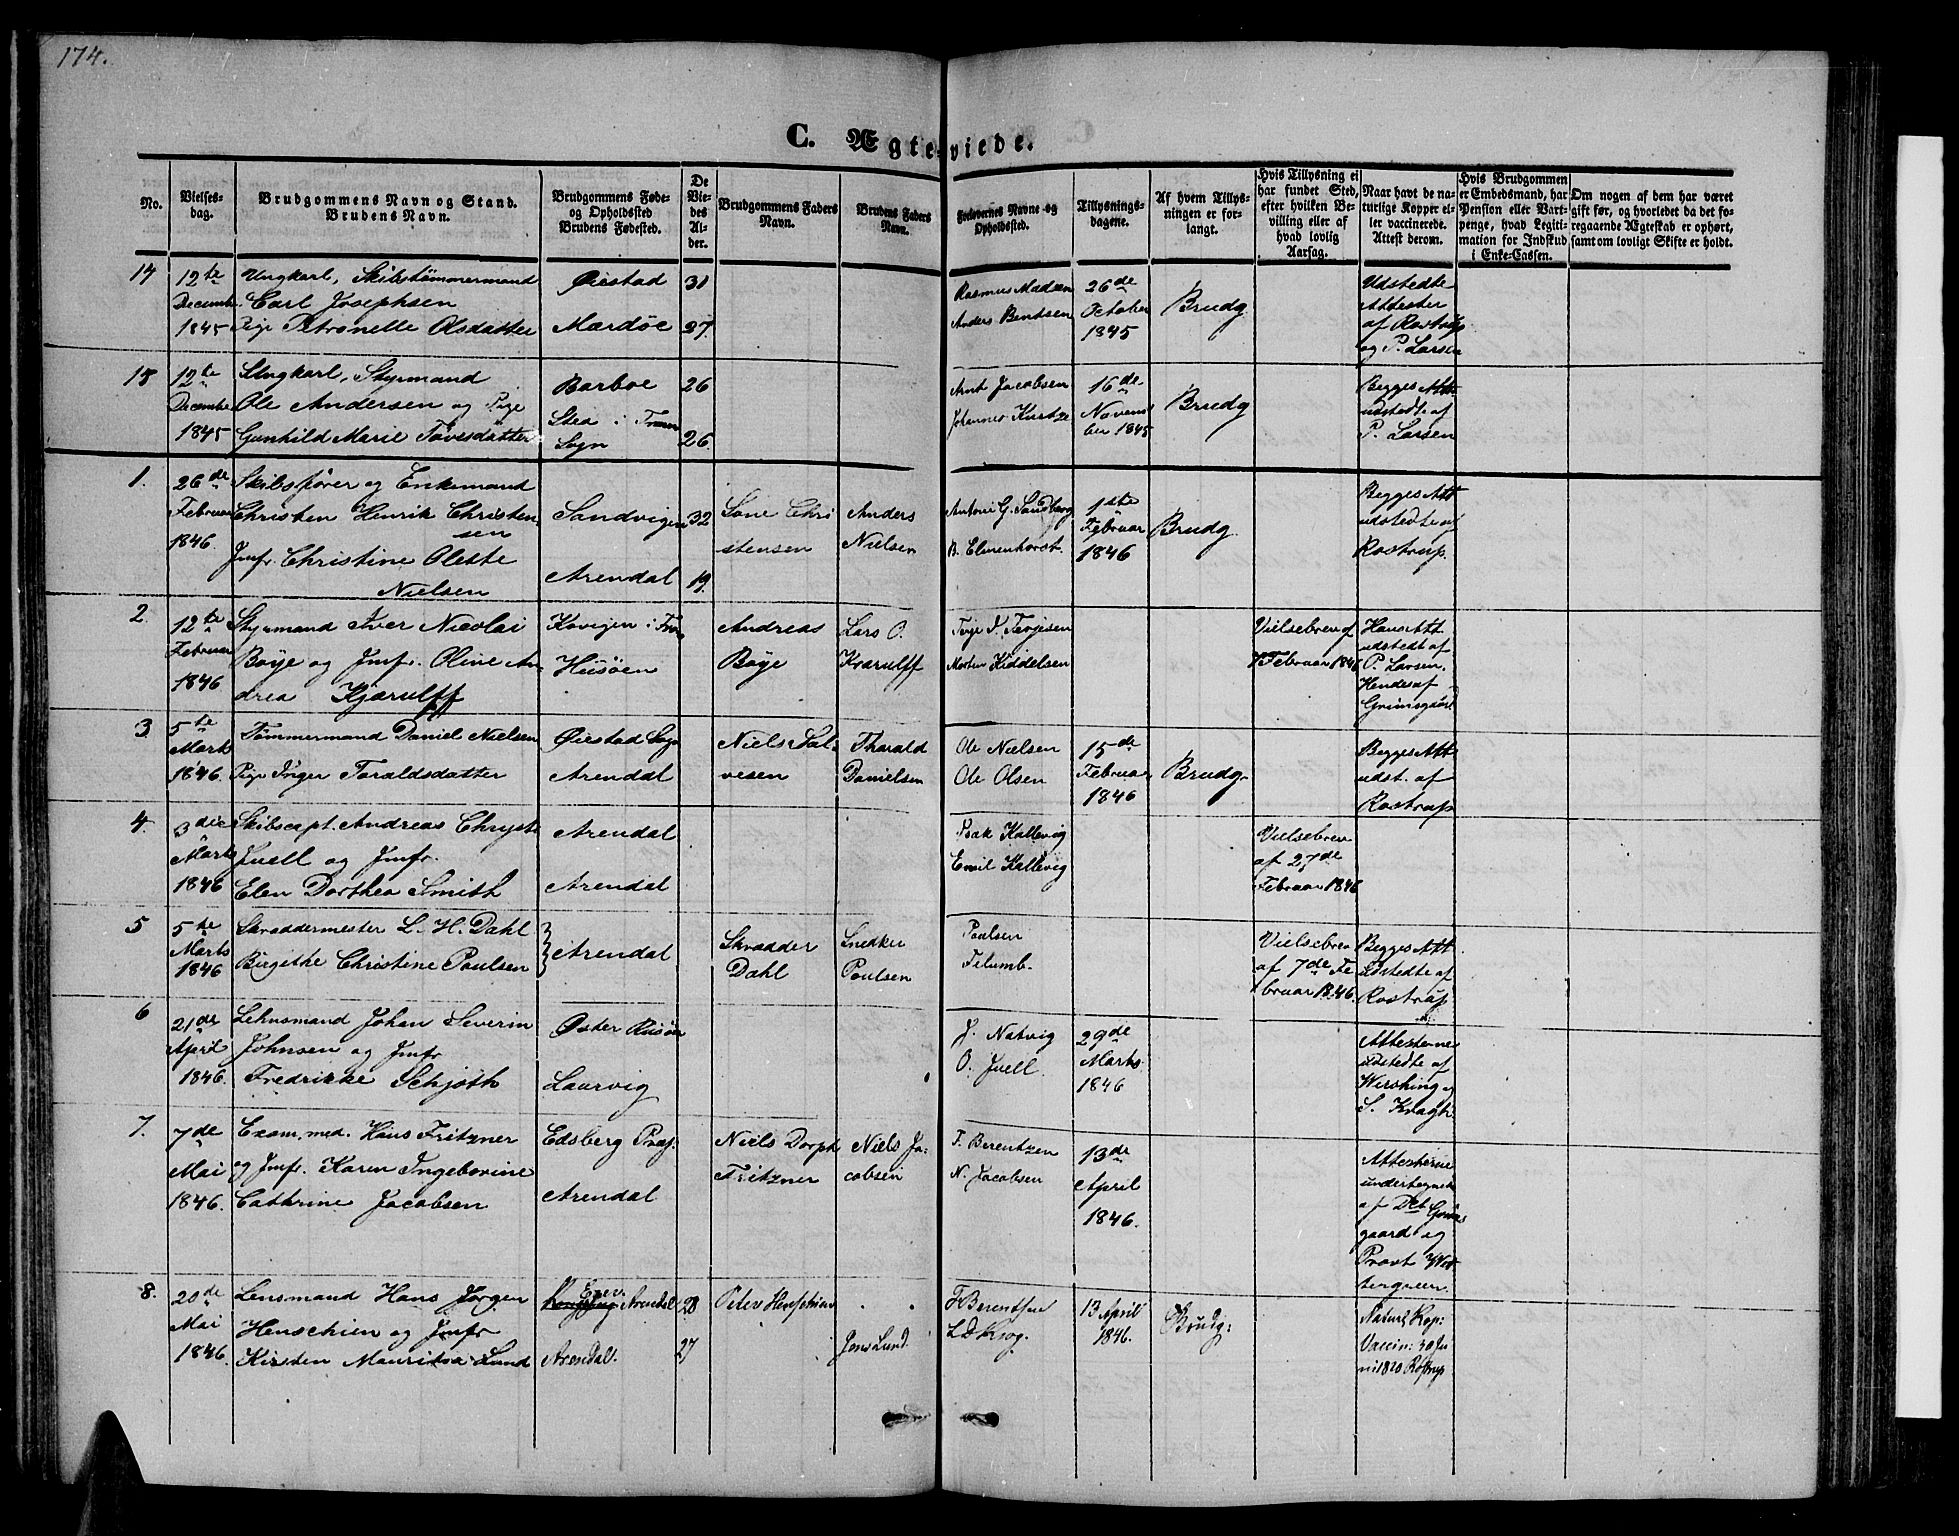 174.
C. Ægteviede.
No.
Vielsesdag.
Brudgommens Navn og Stand.
Brudens Navn.
Brudgommens Føde-
og Opholdssted
Brudens Fødested.
De
Vie-
des
Al-
der.
Brudgommens Faders
Navn.
Brudens Faders
Navn.
Forlovernes Navne og
Opholdssted.
Tillysnings-
dagene.
Af hvem Tillys-
ningen er for-
langt.
Hvis Tillysning ei
har fundet Sted,
efter hvilken Be-
villing eller af
hvad lovlig
Aarsag.
Naar havt de na-
turlige Kopper el-
ler vaccinerede.
Attest derom.
Hvis Brudgommen
er Embedsmand, har
Pension eller Vart-
penge, hvad Legiti-
mation for Indskud
i Enke-Cassen.
Om nogen af dem har været
gift før, og hvorledet da det fo-
regaaende Ægteskab er ophørt,
samt om lovligt Skifte er holdt.
12te
Decembr
1845
Ungkarl, Skibstømmermand
Carl Josephsen
Pige Petronelle Olsdatter
Øiestad
Mærdøe
31
37.
Rasmus Madsen
Anders Bentsen
26de
October
1845
Brudg
Udstedte
Attester
af Rostrup
og P. Larsen
12te
Decembr
1845
Ungkarl, Styrmand
Ole Andersen og Pige
Gunhild Marie Tovesdatter
Barboe
Stea i
Sogn
26
26.
Arnt Jacobsen
Johannes Kurtze
16de
Novem
ber 1845
Brudg
Begges Att
udstedte af
P. Larsen
1.
26de
Februar
1846.
Skibsfører og Enkemand
Christen Henrik Christen-
sen
Jmfr. Christine Oleste
Nielsen
Sandvigen
Arendal
32
19.
Sone Chri
stensen
Anders
Nielsen
Antoni G. Sandberg
B. Elmenhorst.
1ste
Februar
1846
Brudg.
Begges Att
udstedte af
Rostrup.
2.
12te
Februar
1846
Styrmand Iver Nicolai
Boye og Jmfr. Oline An-
drea Kjærulff
Kovigen i
Husøen
Andreas
Boye
Lars O.
Kjærulff
Terje T. Terjesen
Morten Kiddelsen
Vielsebrev af
7 Februar 1846
Hans Att
udstedt af
P. Larsen.
Hendes af
Grimsgaard
3.
5te
Marts
1846.
Tømmermand Daniel Nielsen
Pige Inger Toraldsdatter
Øiestad Sogn
Arendal
Niels Sal-
vesen
Tharald
Danielsen
Ole Nielsen
Ole Olsen
15de
Februar
1846
Brudg.
Begges Att
udst. af
Rostrup
4.
3die
Marts
1846
Skibscapt. Andreas Chryste
Juell og Jmfr.
Elen Dorthea Smith
Arendal
Arendal
Isak Kallevig
Emil Kallevig
Vielsebrev
af 27de
Februar 1846
5
5te
Marts
1846
Skræddermester L. H. Dahl
Birgethe Christine Poulsen
Arendal
Skrædder
Dahl
Snedker
Poulsen
Poulsen
Filumb.
Vielsebrev
af 7de Fe
bruar 1846.
Begges Att
Udstedte af
Rostrup
6
21de
April
1846.
Lehnsmand Johan Severin
Johnsen og Jmfr
Fredrikke Schjøth
Øster Risøer
Laurvig
J. Natvig
O. Juell.
29de
Marts
1846
Attesterne
udstedte af
Wirshing og
S. Kragh
7.
7de
Mai
1846.
Exam. med. Hans Fritzner
og Jmfr. Karen Ingeborine
Cathrine Jacobsen
Edsberg Præg.
Arendal
Niels Dorph
Fritzner
Niels Ja-
cobsen
F. Berentzen
N. Jacobsen
13de
April
1846.
Attesterne
undertegnede
af Dct Grims
gaard og
Provst Wet
tergreen.
8.
20de
Mai
1846.
Lensmand Hans Jørgen
Henschien og Jmfr
Kirsten Mauritza Lund
Arendal
Arendal.
28
27
Peter Henschien
Jens Lund
F Berentsen
L D Krog.
13 April
1846.
Brudg:
Naturl Kop:
Vaccin: 30 Ju
ni 1820 Rostrup